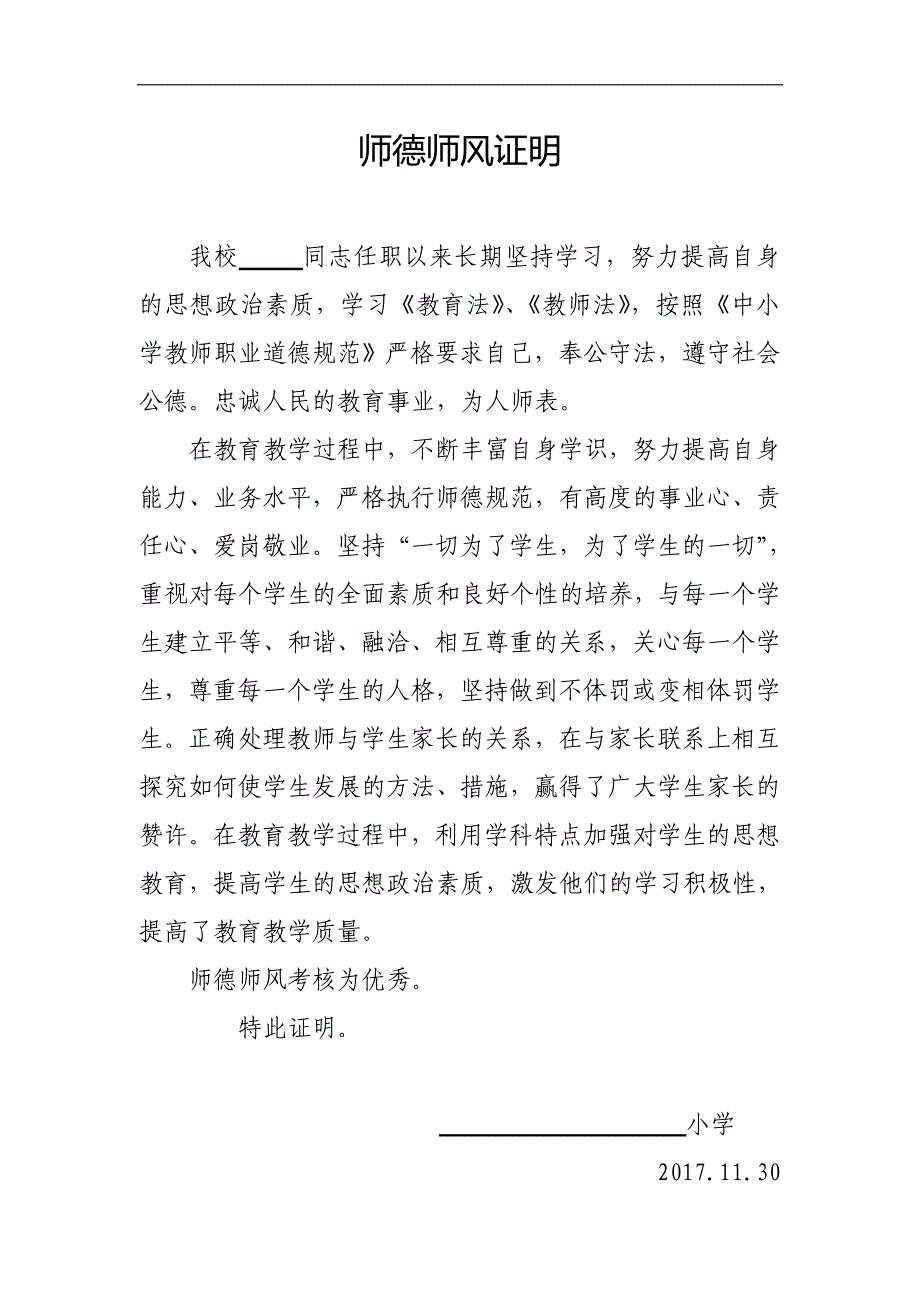 师德师风证明
我校_____同志任职以来长期坚持学习，努力提高自身
的思想政治素质，学习《教育法》、《教师法》，按照《中小
学教师职业道德规范》严格要求自己，奉公守法，遵守社会
公德。忠诚人民的教育事业，为人师表。
在教育教学过程中，不断丰富自身学识，努力提高自身
能力、业务水平，严格执行师德规范，有高度的事业心、责
任心、爱岗敬业。坚持“一切为了学生，为了学生的一切”，
重视对每个学生的全面素质和良好个性的培养，与每一个学
生建立平等、和谐、融洽、相互尊重的关系，关心每一个学
生，尊重每一个学生的人格，坚持做到不体罚或变相体罚学
生。正确处理教师与学生家长的关系，在与家长联系上相互
探究如何使学生发展的方法、措施，赢得了广大学生家长的
赞许。在教育教学过程中，利用学科特点加强对学生的思想
教育，提高学生的思想政治素质，激发他们的学习积极性，
提高了教育教学质量。
师德师风考核为优秀。
特此证明。
___________________小学
2017.11.30